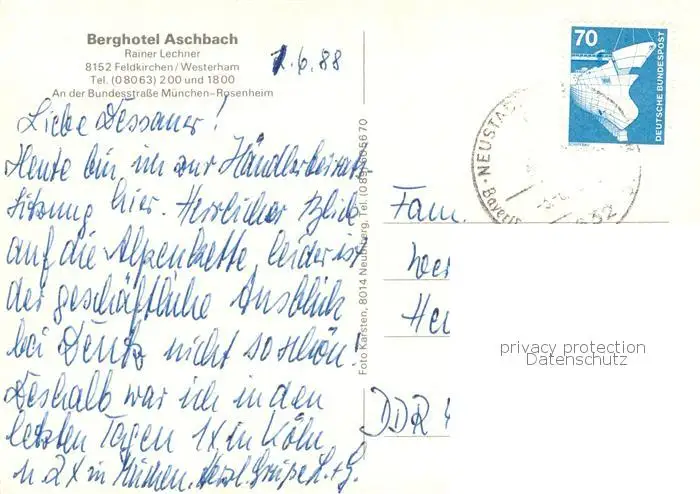 Berghotel Aschbach
Rainer Lechner
8152 Feldkirchen/Westerham
Tel. (08063) 200 und 1800
An der Bundesstraße München-Rosenheim
1.6.88
Liebe Dessauer!
Heute bin ich zur Händlerbeirats
Sitzung hier. Herrlicher Blick
auf die Alpenkette leider ist
der geschäftliche Ausblick
bei Deutz nicht so schön!
Deshalb war ich in den
letzten Tagen 1x in Köln
u 2x in München. Herzl. Grüße L. + G.
Foto Karsten, 8014 Neubiberg, Tel. (089) 605670
70
DEUTSCHE BUNDESPOST
NEUSTADT
Fam.
Wer
He
DDR 4
privacy protection
Datenschutz